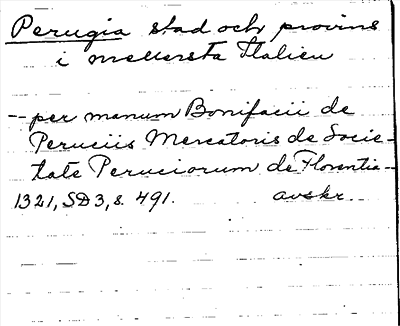 Perugia stad och provins
i mellersta Italien
-- per manum Bonifacii de
Peruciis Mercatoris de Socie-
tate Peruciorum de Florentia--
1321, SD 3, s. 491. avskr.